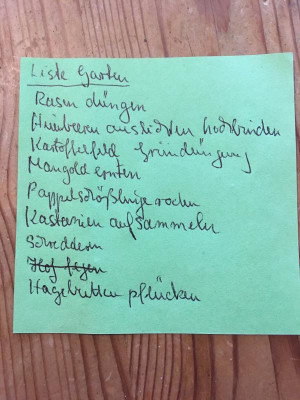 Liste Garten
Rasen düngen
Himbeeren auslichten hochbinden
Kartoffelfeld Gründüngung
Mangold ernten
Pappelschößlinge roden
Kastanien aufsammeln
Schreddern
Hof fegen
Hagebutten pflücken